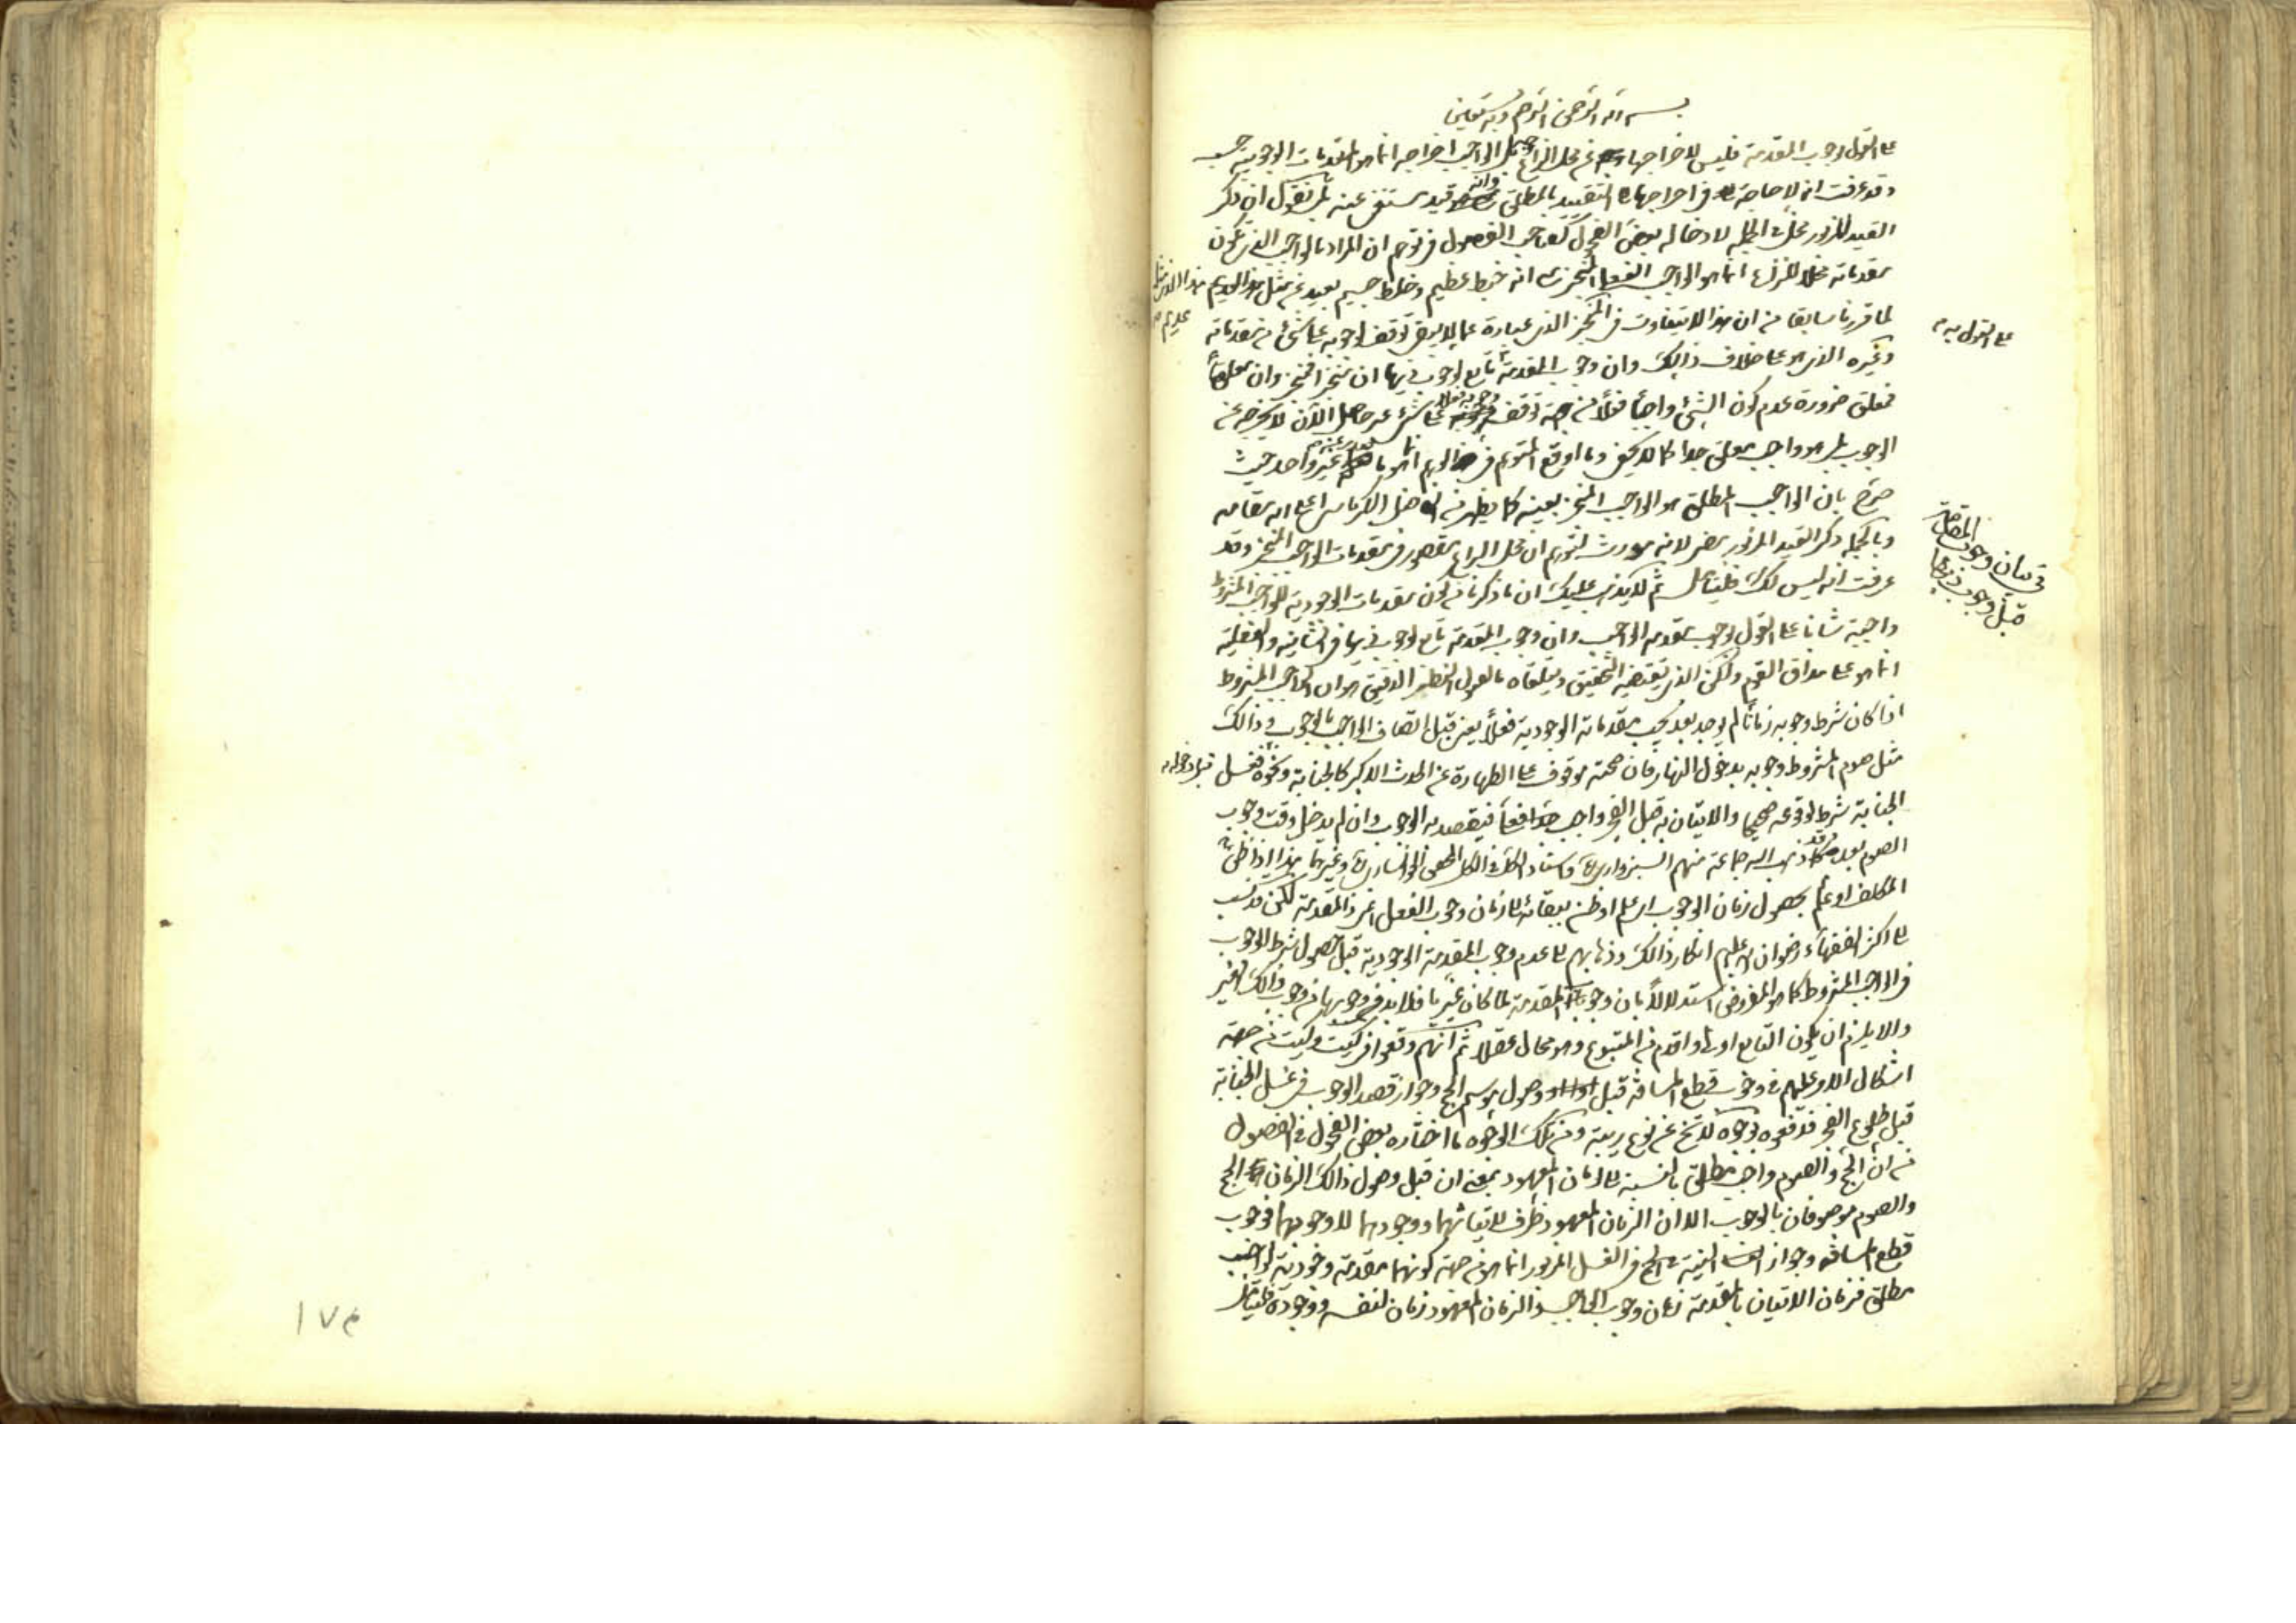 بسم الله الرحمن الرحيم وبه نستعين
على القول بوجوب المقدمة فليس لاخراجها عن محل النزاع بل الواجب اخراجه انما هو المقدمات الوجوبية حسب
وقد عرفت انه لا حاجة في اخراجها الى التقييد بالمطلق وانه قيد مستغنى عنه بل نقول ان ذكر
القيد المزبور مخل في الجملة لادخاله بعض الفحول كصاحب الفصول في توهم ان المراد بالواجب الذي تكون
مقدماته محلا للنزاع انما هو الواجب الفعلي المنجز مع انه خبط عظيم وخلط جسيم بعيد عن مثل
هذا الاذي مثل
عديم
لما قررنا سابقا من ان هذا لا يتفاوت في المنجز الذي عبارة عما لا يتوقف وجوبه على شيء من مقدماته
على القول به
وغيره الذي هو على خلاف ذالك وان وجوب المقدمة تابع لوجوب ذيها ان منجزا فمنجز وان معلقا
فمعلق ضرورة عدم كون الشيء واجبا فعلا من جهة توقف وجوبه على شيء غير حاصل الآن لا يخرجه عن
الوجوب بل هو واجب معلق جدا كما لا يخفى وما اوقع المتوهم في الوهم انما هو ما عن غير واحد حيث
صرح بان الواجب المطلق هو الواجب المنجز بعينه كما يظهر من الفاضل الكرباسي اعلى الله مقامه
وبالجملة ذكر القيد المزبور مضر لانه مورث لتوهم ان محل النزاع مقصور في مقدمات الواجب المنجز وقد
في بيان وجوب المقدمة
قبل وجوب ذيها
عرفت انه ليس كك فليتأمل ثم لا يذهب عليك ان ما ذكرنا من كون مقدمات الوجودية للواجب المشروط
واجبة شأنا على القول بوجوب مقدمة الواجب وان وجوب المقدمة تابع لوجوب ذيها في الشأنية والفعلية
انما هو على مذاق القوم ولكن الذي يقتضيه التحقيق ويتلقاه بالقبول النظر الدقيق هو ان الواجب المشروط
اذا كان شرط وجوبه زمانا لم يوجد بعد يجب مقدماته الوجودية فعلا يعني قبل اتصاف الواجب بالوجوب وذالك
مثل صوم المشروط وجوبه بدخول النهار فان صحته موقوف على الطهارة عن الحدث الاكبر كالجنابة ونحوه فغسل
قبل دخوله
الجنابة شرط لوقوعه صحيحا والاتيان به قبل الفجر واجب فعلا فيقصد به الوجوب وان لم يدخل وقت وجوب
الصوم بعد وقد ذهب اليه جماعة منهم السبزواري واستاد الكل في الكل المحقق الخوانساري وغيرهما هذا اذا ظن
المكلف او علم بحصول زمان الوجوب اي علم او ظن ببقائه الى زمان وجوب الفعل اعني ذا المقدمة لكن قد نسب
الى اكثر الفقهاء رضوان الله عليهم انكار ذالك وذهابهم الى عدم وجوب المقدمة الوجودية قبل حصول شرط الوجوب
في الواجب المشروط كما هو المفروض استدلالا بان وجوب المقدمة لما كان غيريا فلا بد في وجوبها من وجوب ذالك الغير
والا يلزم ان يكون التابع اولى واقدم من المتبوع وهو محال عقلا ثم انهم وقعوا في كيت وكيت من جهة
اشكال الاورد عليهم في وجوب قطع المسافة قبل وصول موسم الحج وجواز قصد الوجوب في غسل الجنابة
قبل طلوع الفجر فدفعوه بوجوه لا تخ عن نوع ريبة ومن تلك الوجوه ما اختاره بعض الفحول في الفصول
من ان الحج والصوم واجب مطلق بالنسبة الى الزمان المعهود بمعنى ان قبل وصول ذالك الزمان الحج
والصوم موصوفان بالوجوب الا ان الزمان المعهود ظرف لاتيانهما ووجودهما لا وجوبهما فوجوب
قطع المسافة وجواز النية في الحج في الغسل المزبور انما هو من جهة كونهما مقدمة وجودية لواجب
مطلق فزمان الاتيان بالمقدمة زمان وجوب الواجب والزمان المعهود زمان لنفسه ووجوده فليتأمل
١٧٤